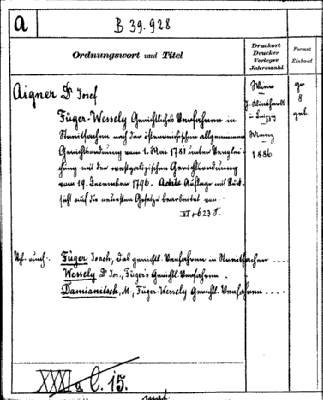 a
B 39.928
Ordnungswort und Titel
Druckort
Drucker
Verleger
Jahreszahl
Format
Einband
Aigner Dr Josef
Wien
gr
8
Füger-Wessely Gerichtliches Verfahren in
Streitsachen nach der österreichischen allgemeinen
Gerichtsordnung vom 1. Mai 1781 unter Verglei-
u. Leipzig
geb.
chung mit der westgalizischen Gerichtsordnung
Manz
vom 19. December 1796. Achte Auflage mit Rück-
1886
sicht auf die neuesten Gesetze bearbeitet von
VI + 623 S.
Füger Joach., das gerichtl. Verfahren in Streitsachen
Wessely Dr Jos., Füger's Gerichtl. Verfahren.
Damianitsch, M., Füger-Wessely Gerichtl. Verfahren
XXXI a C. 15.